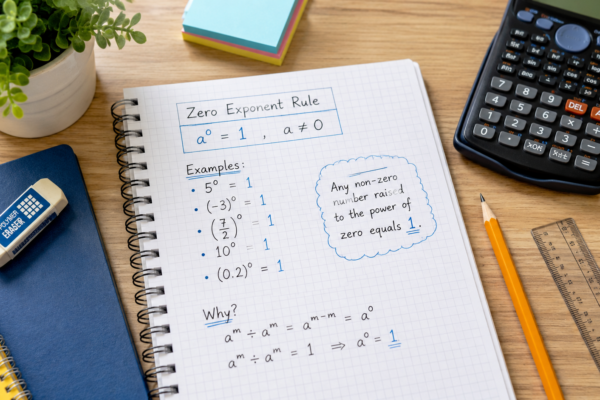 Zero Exponent Rule
a⁰ = 1 , a ≠ 0
Examples:
• 5⁰ = 1
• (-3)⁰ = 1
• (7/2)⁰ = 1
• 10⁰ = 1
• (0.2)⁰ = 1
Any non-zero
number raised
to the power of
zero equals 1.
Why?
aᵐ ÷ aᵐ = aᵐ⁻ᵐ = a⁰
aᵐ ÷ aᵐ = 1 ⇒ a⁰ = 1
POLYMER
ERASER
7 8 9 DEL AC
4 5 6
1 2 3
0